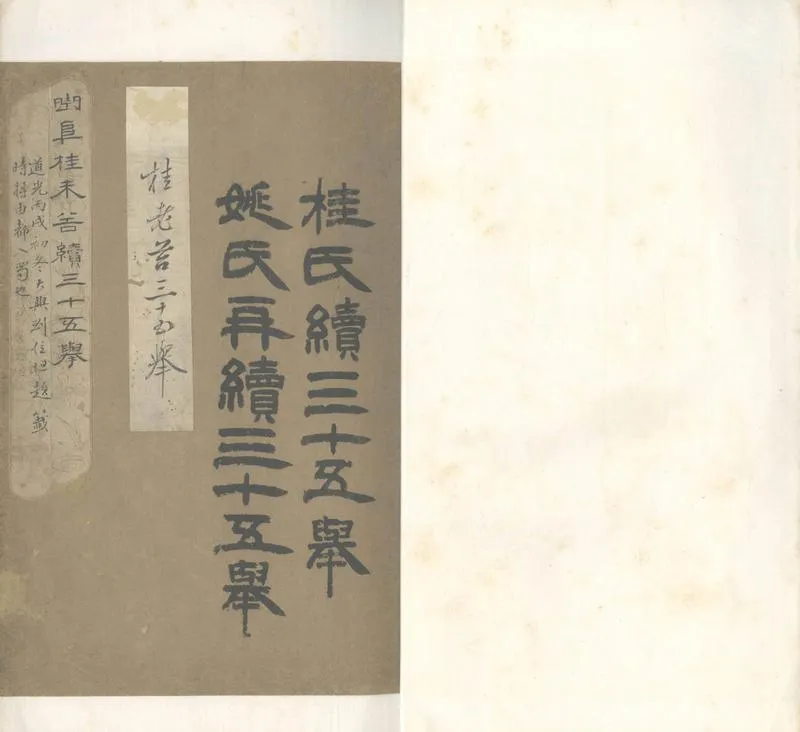 桂氏續三十五舉
姚氏再續三十五舉
桂未谷三十五舉
曲阜桂未谷續三十五舉
道光丙戌初冬大興劉位坦題籤
時將由都入蜀也